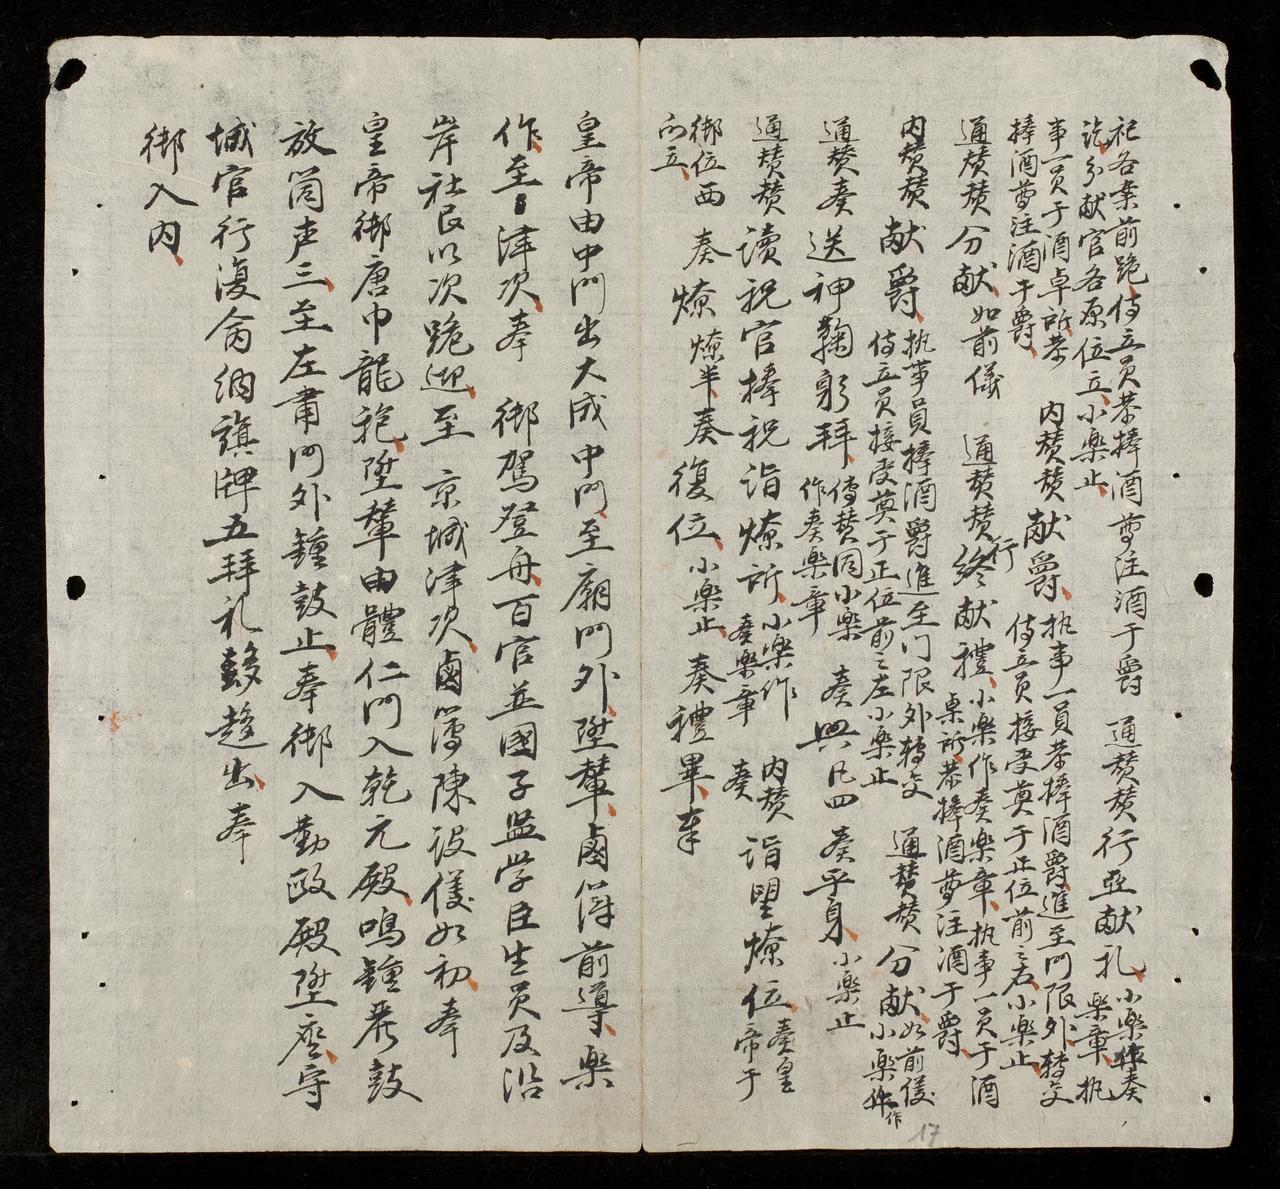 祀各案前跪侍立員恭捧酒尊注酒于爵 通賛賛行亞献礼小楽作奏
訖分献官各原位立小楽止 楽章执
事一員于酒卓所恭 内賛賛献爵执事一員恭捧酒爵進至门限外轉交
捧酒尊注酒于爵 侍立員接受奠于正位前之右小楽止
通賛賛分献如前儀 通賛賛行終献禮小楽作奏楽章执事一員于酒
桌所恭捧酒尊注酒于爵
内賛賛献爵执事員捧酒爵進至门限外轉交 通賛賛分献如前儀
侍立員接受奠于正位前之左小楽止 小楽作
通賛奏送神鞠躬拜傳賛同小楽 奏興凡四 奏平身小楽止
作奏楽章
通賛賛讀祝官捧祝詣燎所小楽作 内賛 詣望燎位奏皇
奏楽章 奏 帝于
御位西 奏燎燎半奏復位小楽止奏禮畢奉
向立
皇帝由中门出大成中门至廟门外陞輦鹵簿前導楽
作至津次奉 御駕登舟百官並國子监学臣生員及沿
岸社民以次跪迎至 京城津次鹵簿陳設儀如初奉
皇帝御唐巾龍袍陞輦由體仁门入乾元殿鳴鍾發鼓
放筒声三至左肅门外鍾鼓止奉御入勤政殿陞座守
城官行復命納旗牌五拜礼趍出奉
御入内
17